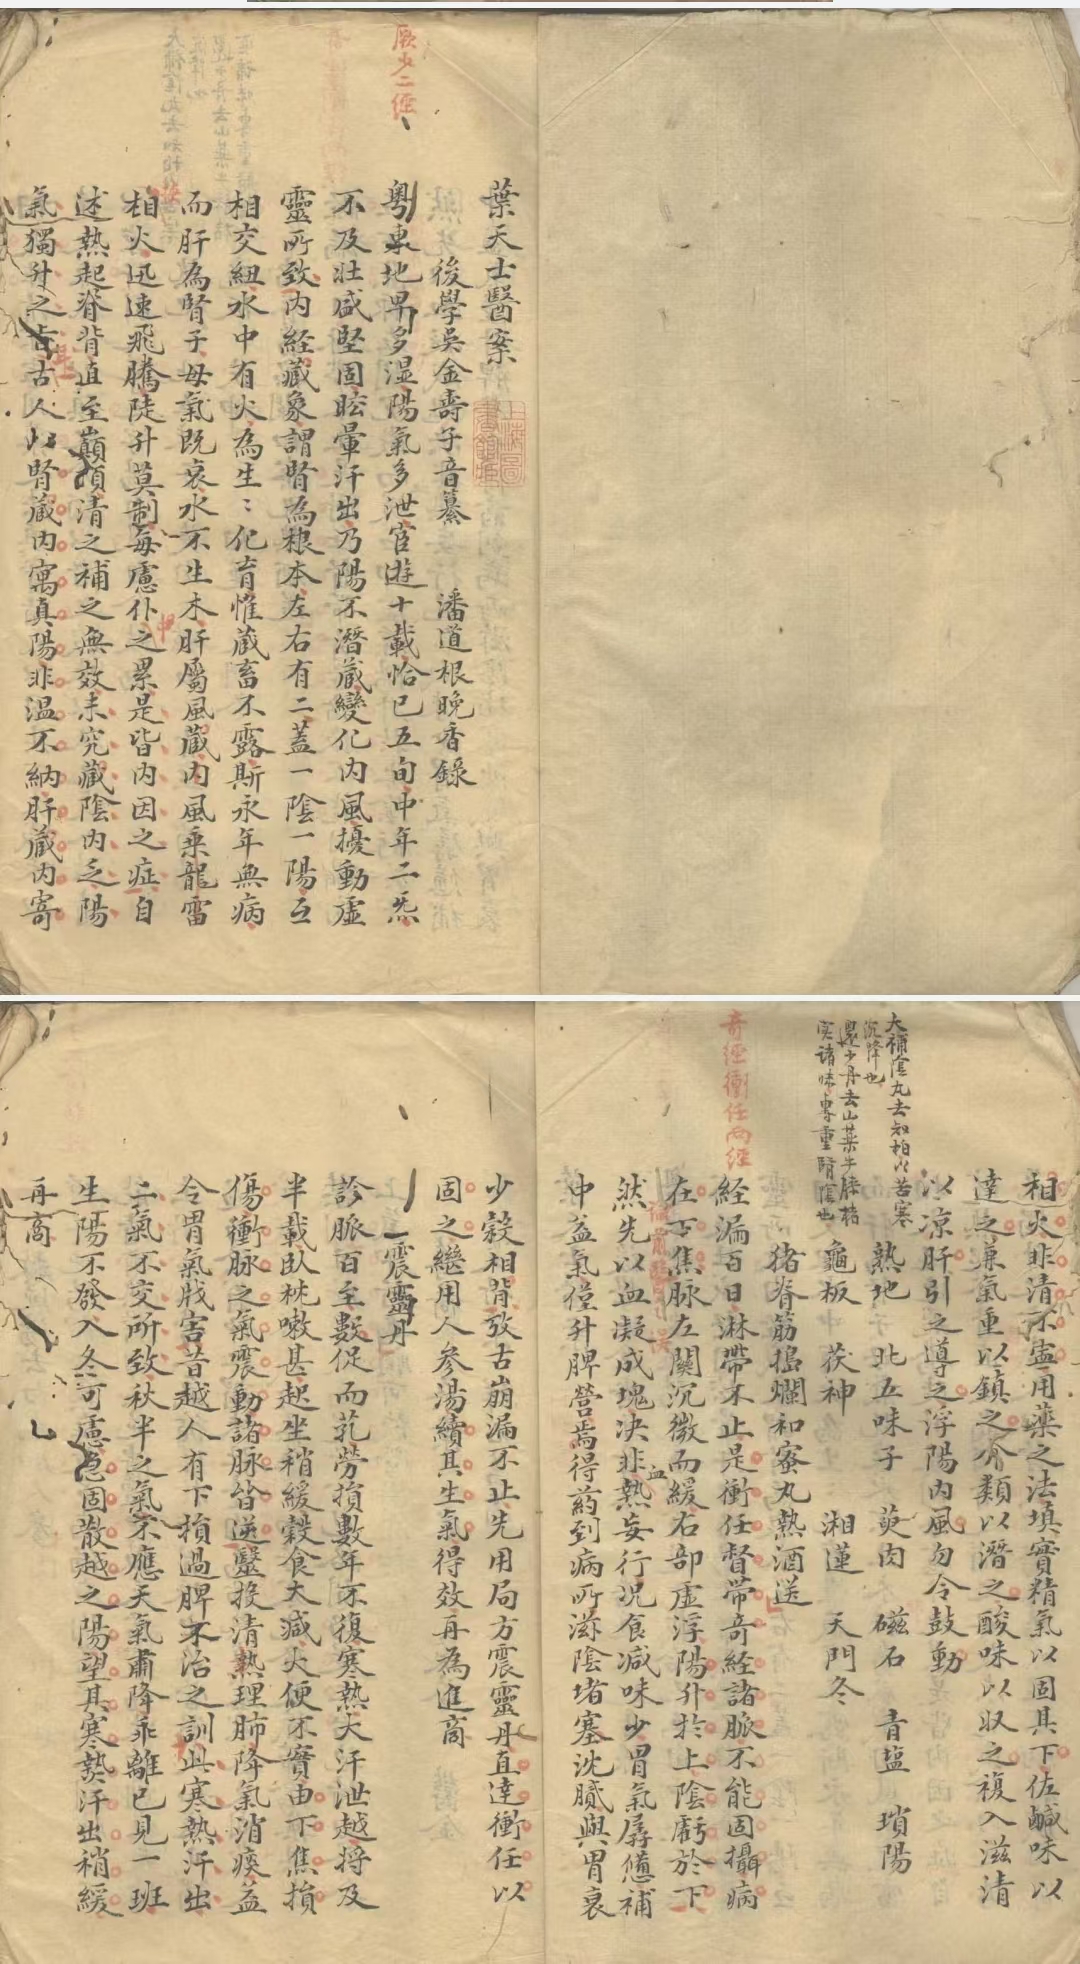 厥少二經
葉天士醫案
後學吳金壽子音纂 潘道根晚香錄
粵東地卑多濕陽氣多泄宦遊十載恰已五旬中年二炁
不及壯盛堅固眩暈汗出乃陽不潛蔵變化内風擾動虛
靈所致内経藏象謂腎為根本左右有二蓋一陰一陽互
相交紐水中有火為生〻化育惟蔵畜不露斯永年無病
而肝為腎子母氣既衰水不生木肝屬風蔵内風乘龍雷
相火迅速飛騰陡升莫制每慮仆之累是皆内因之症自
述熱起脊背直至巔頂清之補之無效未究藏陰内乏陽
氣獨升之旨古人以腎蔵内寓真陽非温不納肝蔵内寄
大補陰丸去知柏以苦寒
沉降也
還少丹去山薬牛膝楮
实諸味專重腎陰也
奇經衝任兩經
相火非清不寧用薬之法填實精氣以固其下佐鹹味以
達之兼氣重以鎮之介類以潛之酸味以収之複入滋清
以凉肝引之導之浮陽内風勿令鼓動
熟地 北五味子 萸肉 磁石 青塩 瑣陽
龜板 茯神 湘蓮 天門冬
猪脊筋搗爛和蜜丸熟酒送
経漏百日淋帶不止是衝任督带奇経諸脈不能固攝病
在下焦脉左關沉微而緩右部虚浮陽升於上陰虧於下
然先以血凝成塊决非熱血妄行况食减味少胃氣孱憊補
中益氣僅升脾營焉得药到病所滋陰堵塞沈膩與胃衰
少穀相背攷古崩漏不止先用局方震靈丹直達衝任以
固之繼用人參湯續其生氣得效再為進商
震靈丹
診脈百至數促而芤勞損數年不復寒熱大汗泄越将及
半載臥枕嗽甚起坐稍緩穀食大减大便不實由下焦損
傷衝脉之氣震動諸脉皆逆醫投清熱理肺降氣消痰益
令胃氣戕害昔越人有下損過脾不治之訓此寒熱汗出
二氣不交所致秋半之氣不應天氣肅降乖離已見一班
生陽不發入冬可慮急固散越之陽望其寒熱汗出稍緩
再商